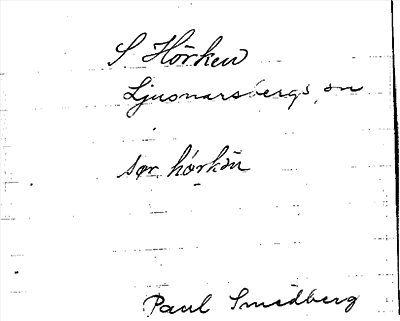 S Hörken
Ljusnarsbergs sn
sør hórkän
Paul Smedberg